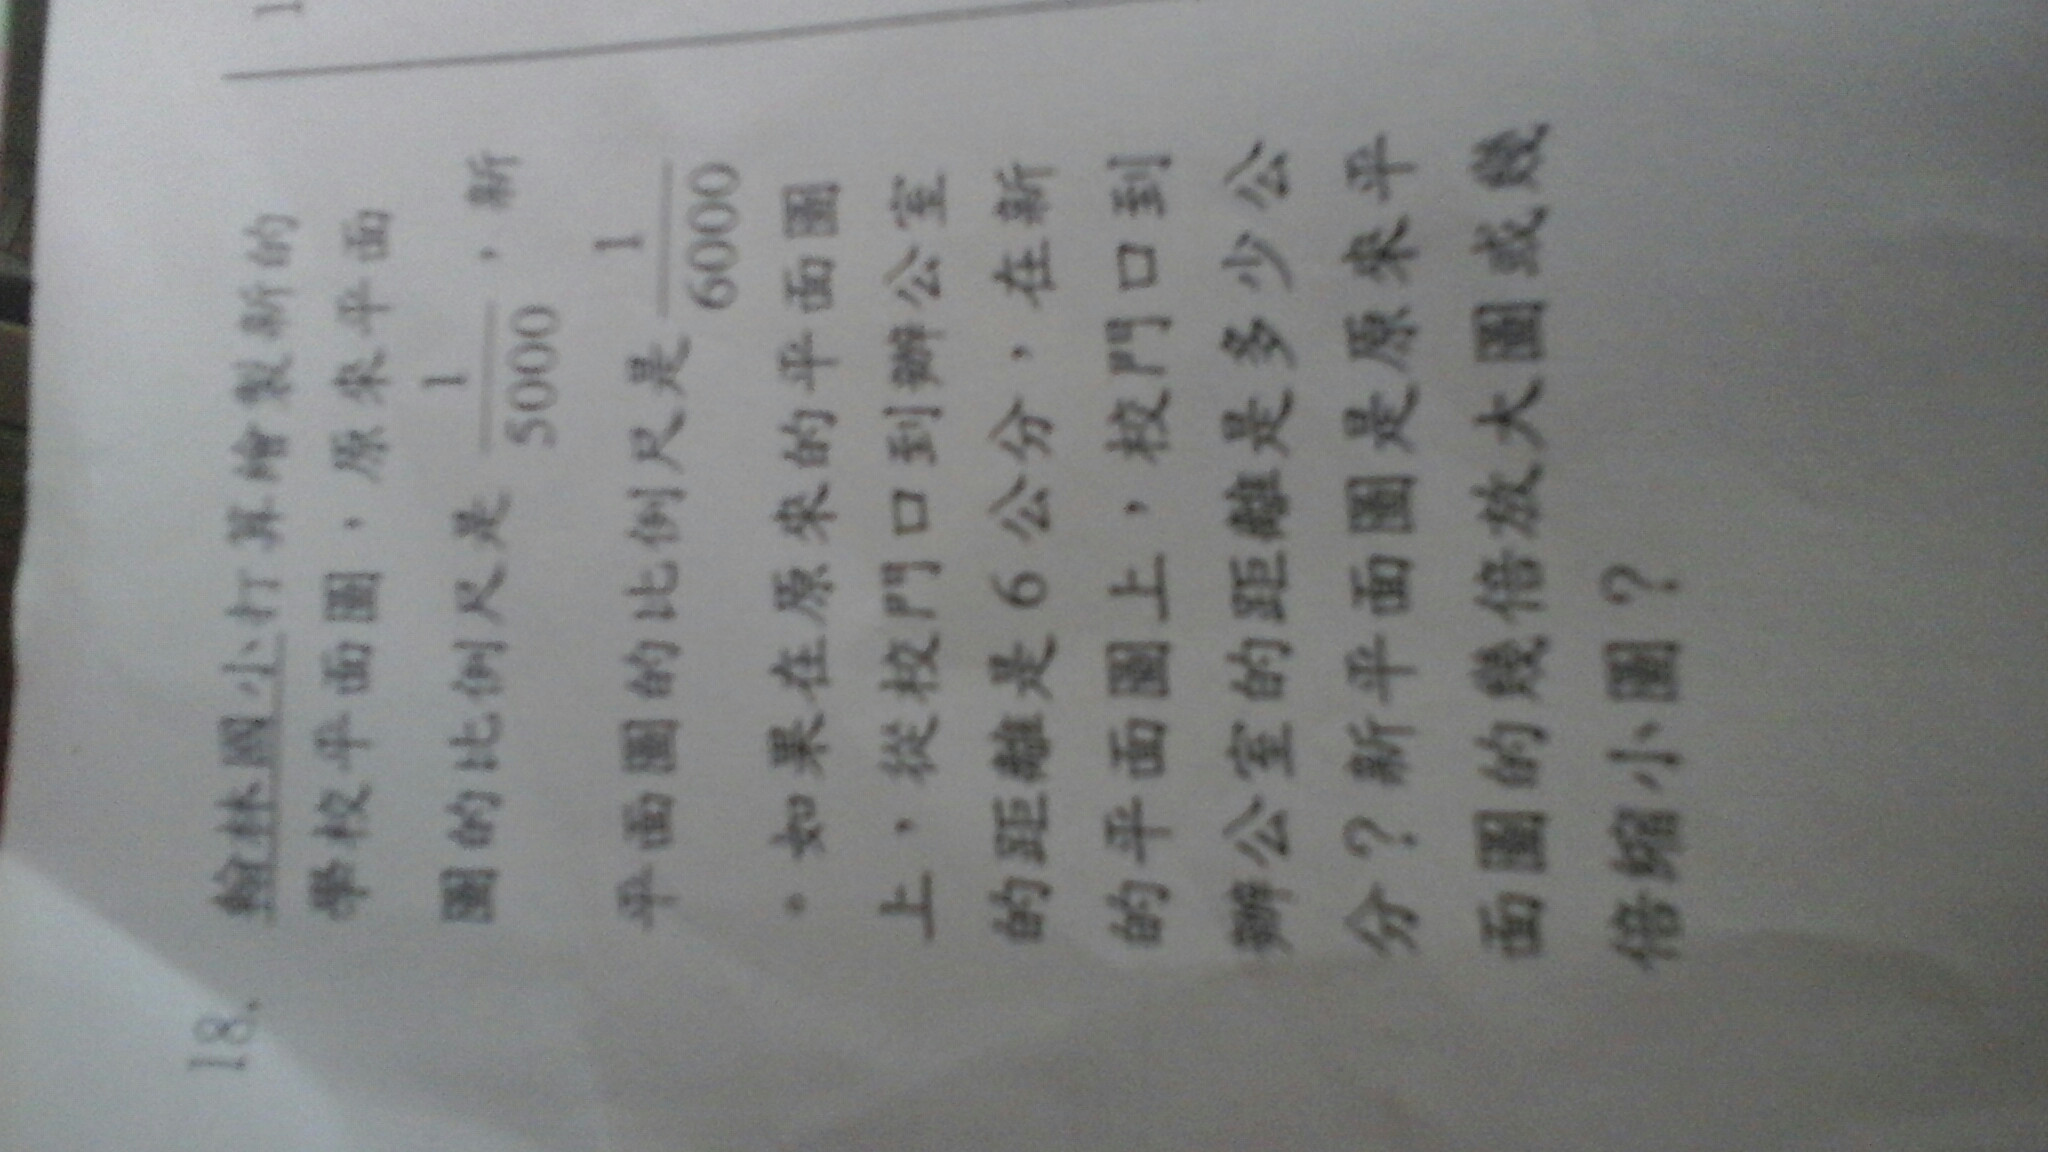 18. 翰林國小打算繪製新的
學校平面圖，原來平面
圖的比例尺是 1/5000 ，新
平面圖的比例尺是 1/6000
。如果在原來的平面圖
上，從校門口到辦公室
的距離是6公分，在新
的平面圖上，校門口到
辦公室的距離是多少公
分？新平面圖是原來平
面圖的幾倍放大圖或幾
倍縮小圖？